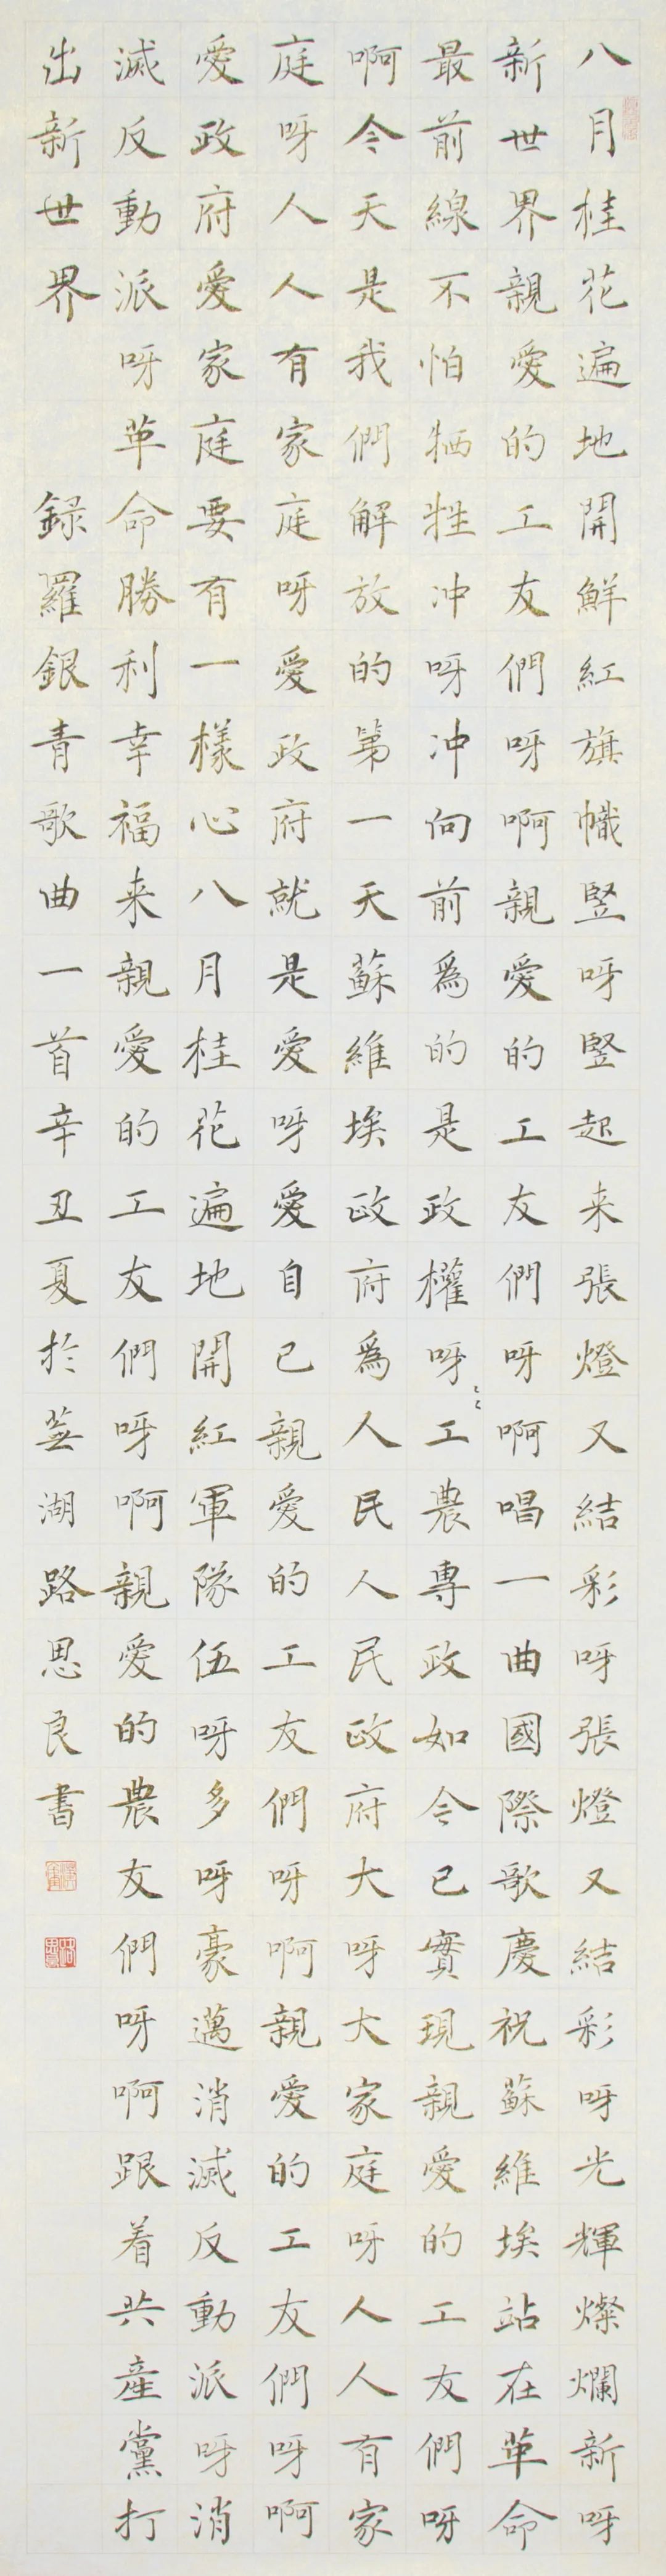 八月桂花遍地開鮮紅旗幟竪呀竪起来張燈又結彩呀張燈又結彩呀光輝燦爛新呀
新世界親愛的工友們呀啊親愛的工友們呀啊唱一曲國際歌慶祝蘇維埃站在革命
最前線不怕牺牲冲呀冲向前爲的是政權呀〻工農專政如今已實現親愛的工友們呀
啊今天是我們解放的第一天蘇維埃政府爲人民人民政府大呀大家庭呀人人有家
庭呀人人有家庭呀愛政府就是愛呀愛自己親愛的工友們呀啊親愛的工友們呀啊
愛政府愛家庭要有一樣心八月桂花遍地開紅軍隊伍呀多呀豪邁消滅反動派呀消
滅反動派呀革命勝利幸福来親愛的工友們呀啊親愛的農友們呀啊跟着共產黨打
出新世界
録羅銀青歌曲一首辛丑夏於蕪湖路思良書